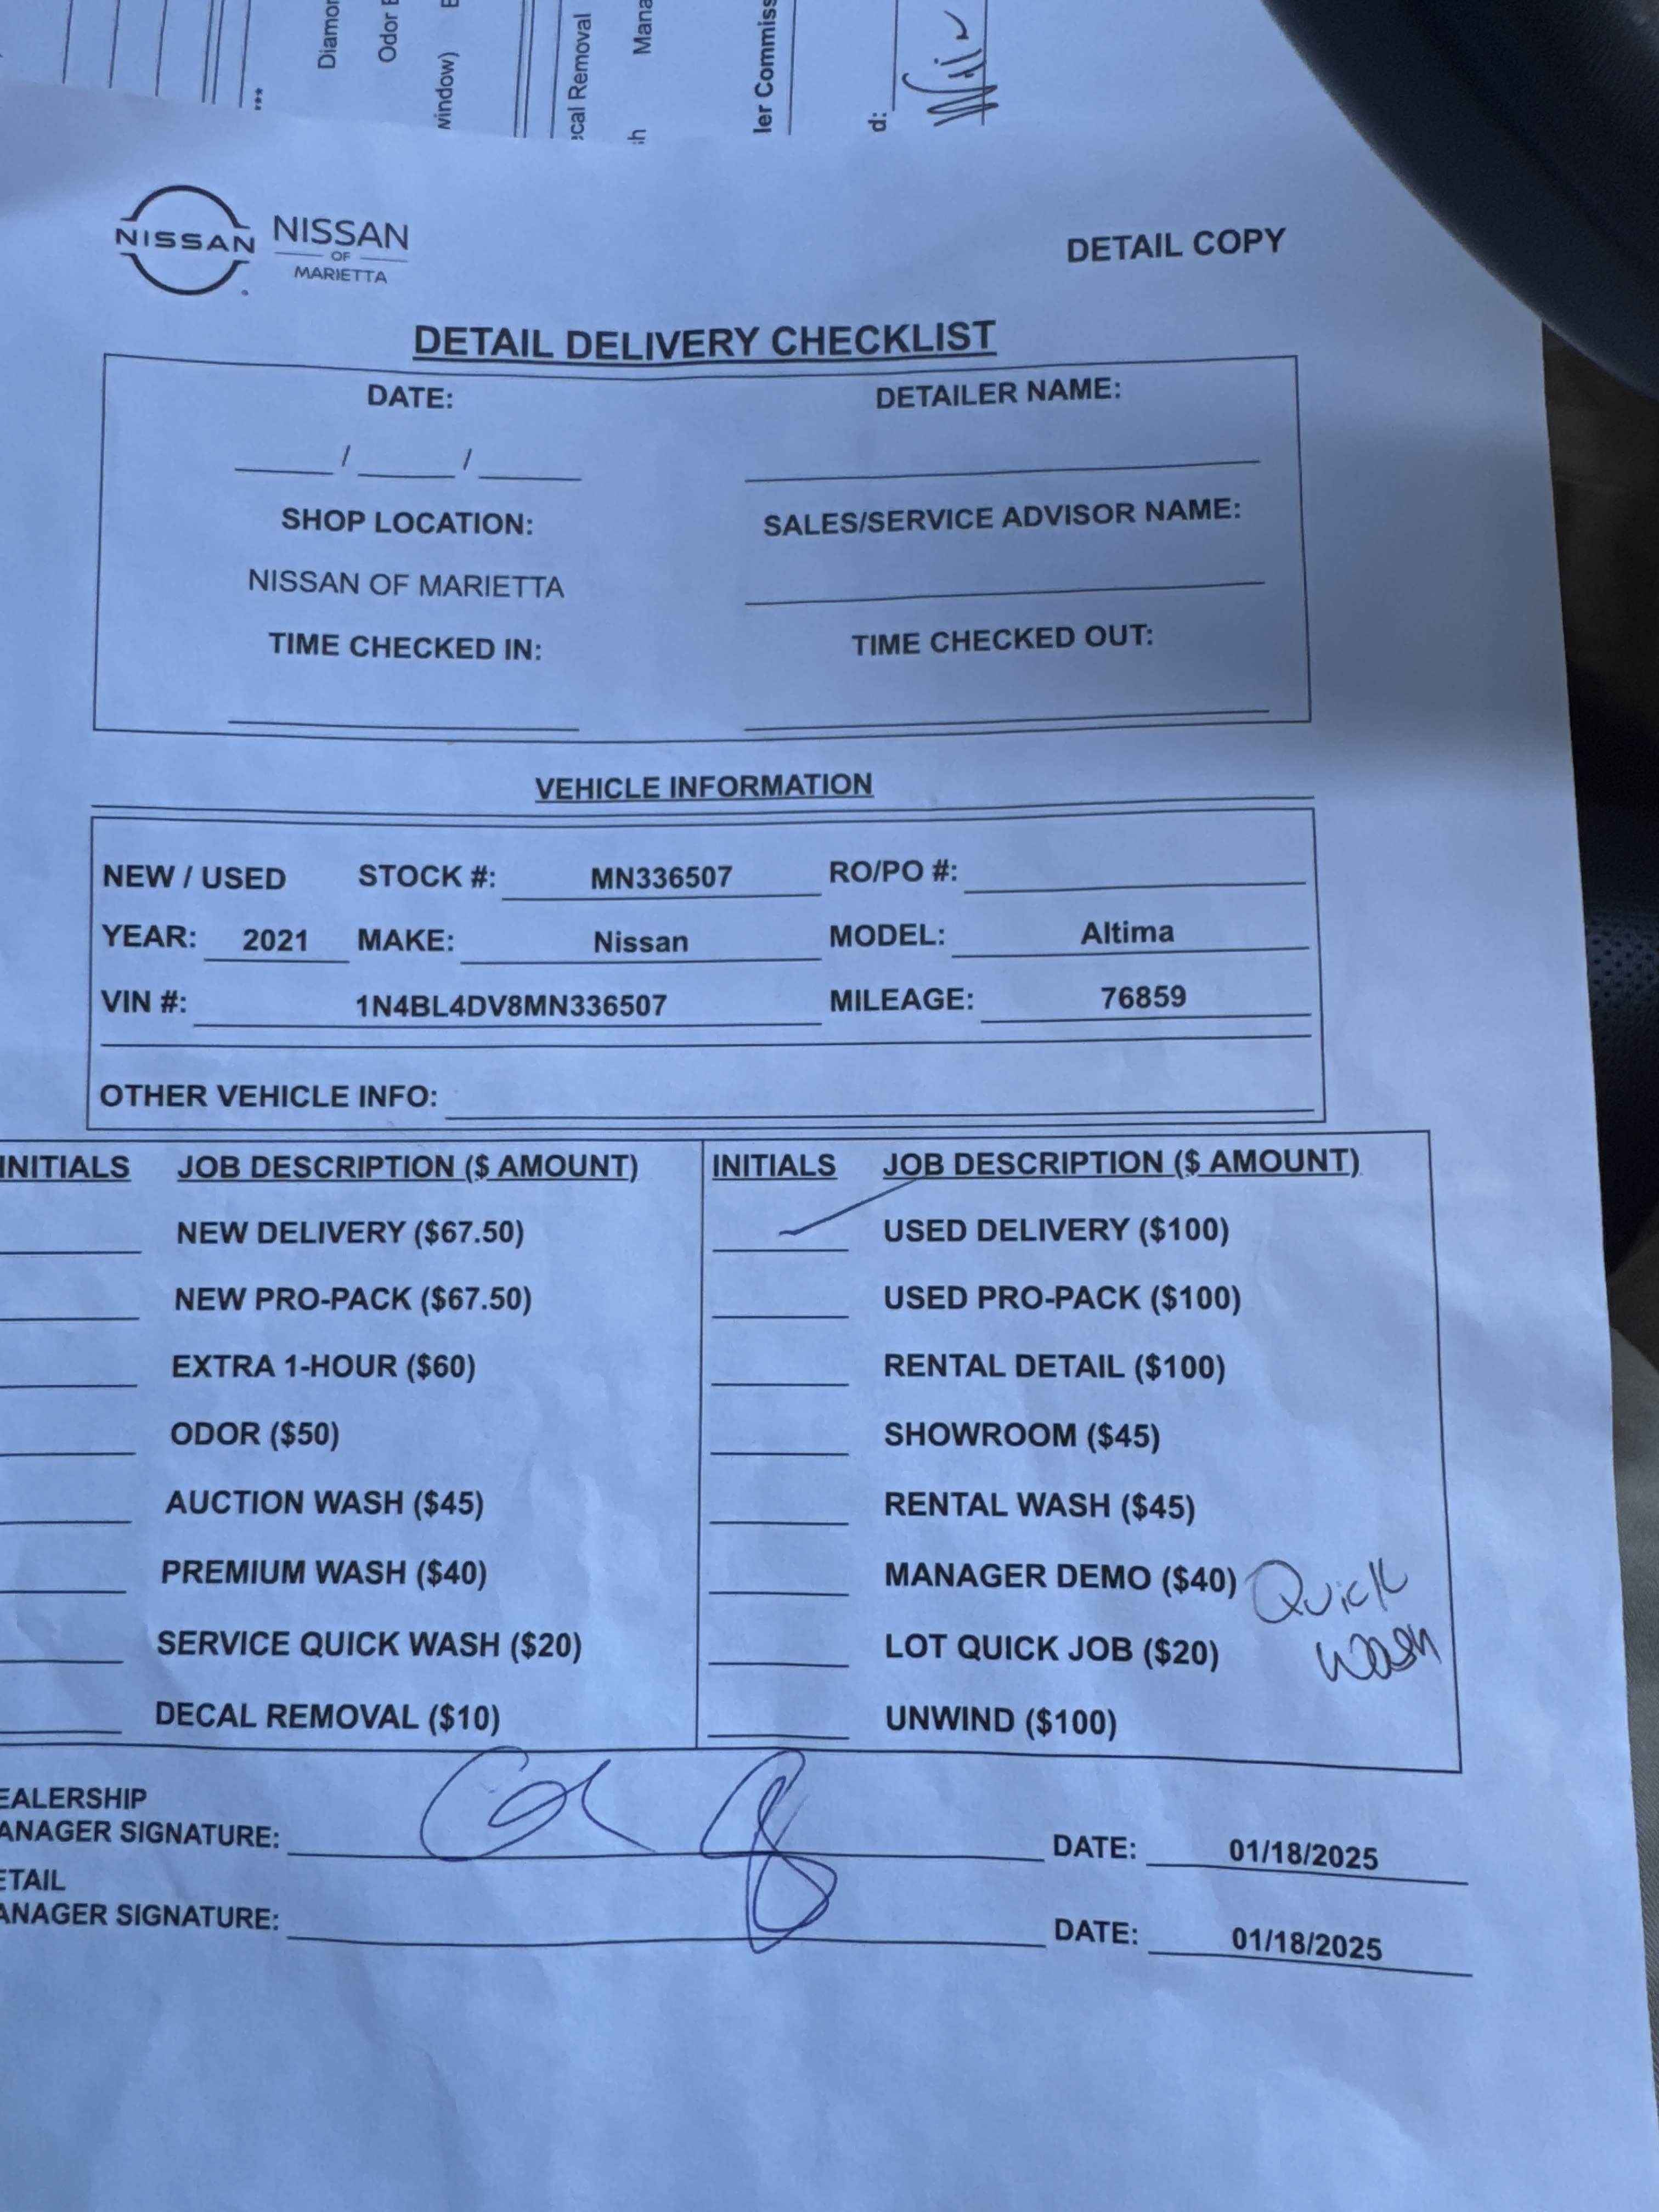 Diamon
Odor E
window)
ecal Removal
Mana
ler Commiss
d:
NISSAN NISSAN
OF
MARIETTA
DETAIL COPY
DETAIL DELIVERY CHECKLIST
DATE: DETAILER NAME:
____/____/____
SHOP LOCATION: SALES/SERVICE ADVISOR NAME:
NISSAN OF MARIETTA
TIME CHECKED IN: TIME CHECKED OUT:
VEHICLE INFORMATION
NEW / USED STOCK #: MN336507 RO/PO #:
YEAR: 2021 MAKE: Nissan MODEL: Altima
VIN #: 1N4BL4DV8MN336507 MILEAGE: 76859
OTHER VEHICLE INFO:
INITIALS JOB DESCRIPTION ($ AMOUNT) INITIALS JOB DESCRIPTION ($ AMOUNT)
NEW DELIVERY ($67.50) USED DELIVERY ($100)
NEW PRO-PACK ($67.50) USED PRO-PACK ($100)
EXTRA 1-HOUR ($60) RENTAL DETAIL ($100)
ODOR ($50) SHOWROOM ($45)
AUCTION WASH ($45) RENTAL WASH ($45)
PREMIUM WASH ($40) MANAGER DEMO ($40) Quick
SERVICE QUICK WASH ($20) LOT QUICK JOB ($20) wash
DECAL REMOVAL ($10) UNWIND ($100)
EALERSHIP
ANAGER SIGNATURE: DATE: 01/18/2025
ETAIL
ANAGER SIGNATURE: DATE: 01/18/2025